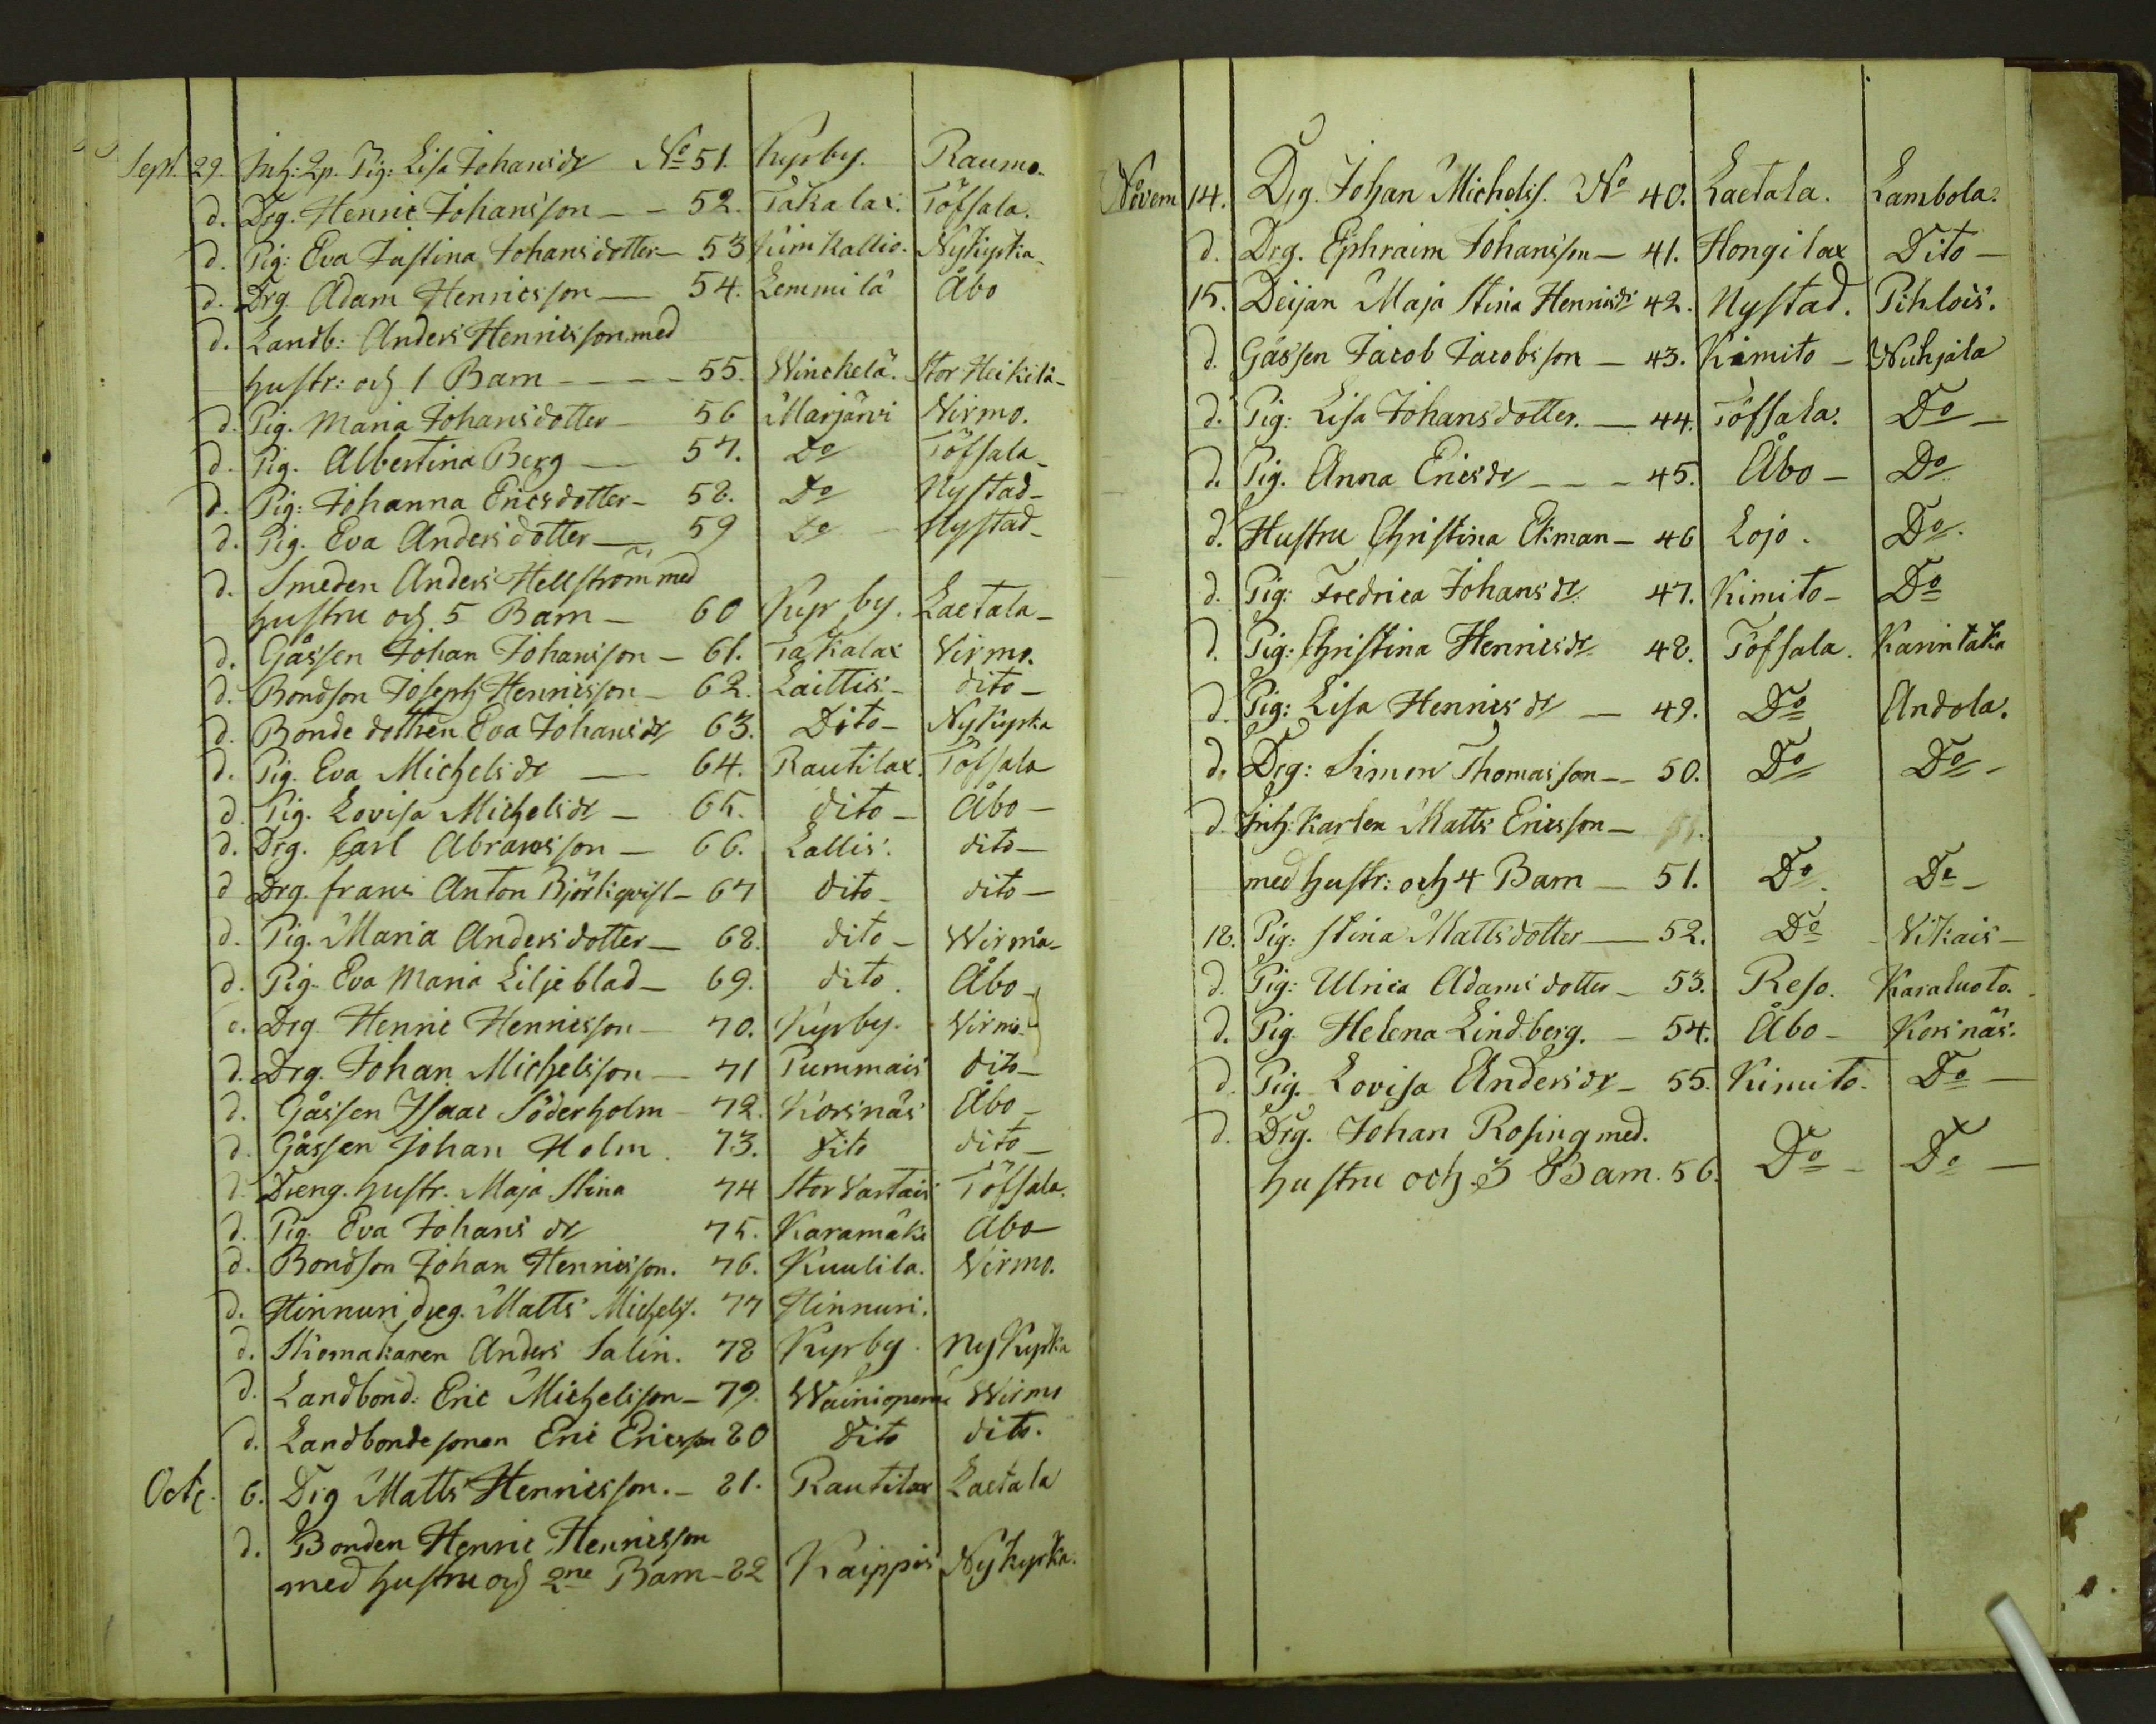 Sept. 29. Inh: Qp. Pig: Lisa Johansdr No 51. Kyrby. Raumo.
d. Drg. Henric Johansson - - 52. Takalax. Töfsala.
d. Pig: Eva Justina Johansdotter - 53 Kimkallio. Nykyrka -
d. Drg Adam Henricsson - 54. Lemmilä Åbo
d. Landb: Anders Henricsson med
hustr: och 1 Barn - - - - 55. Winckelä. Stor Heikilä -
d. Pig. Maria Johansdotter - 56 Marjärvi Virmo.
d. Pig. Albertina Berg - 57. Do Töfsala -
d. Pig: Johanna Ericsdotter - 58. Do Nystad -
d. Pig. Eva Andersdotter - 59 Do - Nystad -
d. Smeden Anders Hellström med
hustru och 5 Barn - 60 Kyrby. Laetala -
d. Gåssen Johan Johansson - 61. Takalax Virmo.
d. Bondson Joseph Henricsson - 62. Laittis - dito -
d. Bondedottren Eva Johansdr 63. Dito - Nykyrka
d. Pig. Eva Michelsdr - 64. Rautilax. Töfsala
d. Pig. Lovisa Michelsdr - 65. dito - Åbo -
d. Drg. Carl Abramsson - 66. Lallis. dito -
d Drg. frans Anton Björkqvist - 67 dito - dito -
d. Pig. Maria Andersdotter - 68. dito - Wirmo -
d. Pig. Eva Maria Liljeblad - 69. dito. Åbo -
d. Drg Henric Henricsson - 70. Kyrby. Virmo -
d. Drg. Johan Michelsson - 71 Pummais dito -
d. Gåssen Isaac Söderholm - 72. Korsnäs Åbo -
d. Gåssen Johan Holm. 73. dito dito -
d. Dreng. hustr. Maja Stina 74 Stor Vartais Töfsala.
d. Pig. Eva Johansdr 75. Karamäki Åbo -
d. Bondson Johan Henricsson. 76. Kuulila. Virmo.
d. Hinnuri dreg. Matts Michels. 77 Hinnuri.
d. Skomakaren Anders Salin. 78 Kyrby. Nykyrka
d. Landbond: Eric Michelsson - 79. Wainionperä Wirmo
d. Landbondesonen Eric Ericsson 80 dito dito.
Octr. 6. Drg Matts Henricsson. - 81. Rautilax Laetala
d. Bonden Henric Henricsson
med hustru och 2ne Barn - 82 Kaippis Nykyrka.
Novem 14. Drg. Johan Michels. No 40. Laetala. Lambola.
d. Drg. Ephraim Johansson - 41. Hongilax Dito -
15. Deijan Maja Stina Henricsdr 42. Nystad. Pihlois.
d. Gåssen Jacob Jacobsson - 43. Kimito - Nuhjala
d. Pig: Lisa Johansdotter. - 44. Töfsala. Do -
d. Pig. Anna Ericsdr - - - 45. Åbo - Do
d. Hustru Christina Ekman - 46 Lojo. Do.
d. Pig: Fredrica Johansdr 47. Kimito - Do
d. Pig: Christina Henricsdr 48. Töfsala. Karintaka
d. Pig: Lisa Henricsdr - 49. Do Andola.
d. Drg: Simon Thomasson - - 50. Do Do -
d Inh: Karlen Matts Ericsson -
med hustr: och 4 Barn - 51. Do. Do -
18. Pig: Stina Mattsdotter - 52. Do - Vikais -
d. Pig: Ulrica Adamsdotter - 53. Reso. Karaluoto.
d. Pig. Helena Lindberg. - 54. Åbo - Korsnäs.
d. Pig. Lovisa Andersdr - 55. Kimito. Do -
d. Drg. Johan Rosing med.
hustru och 3 Barn. 56. Do - Do -